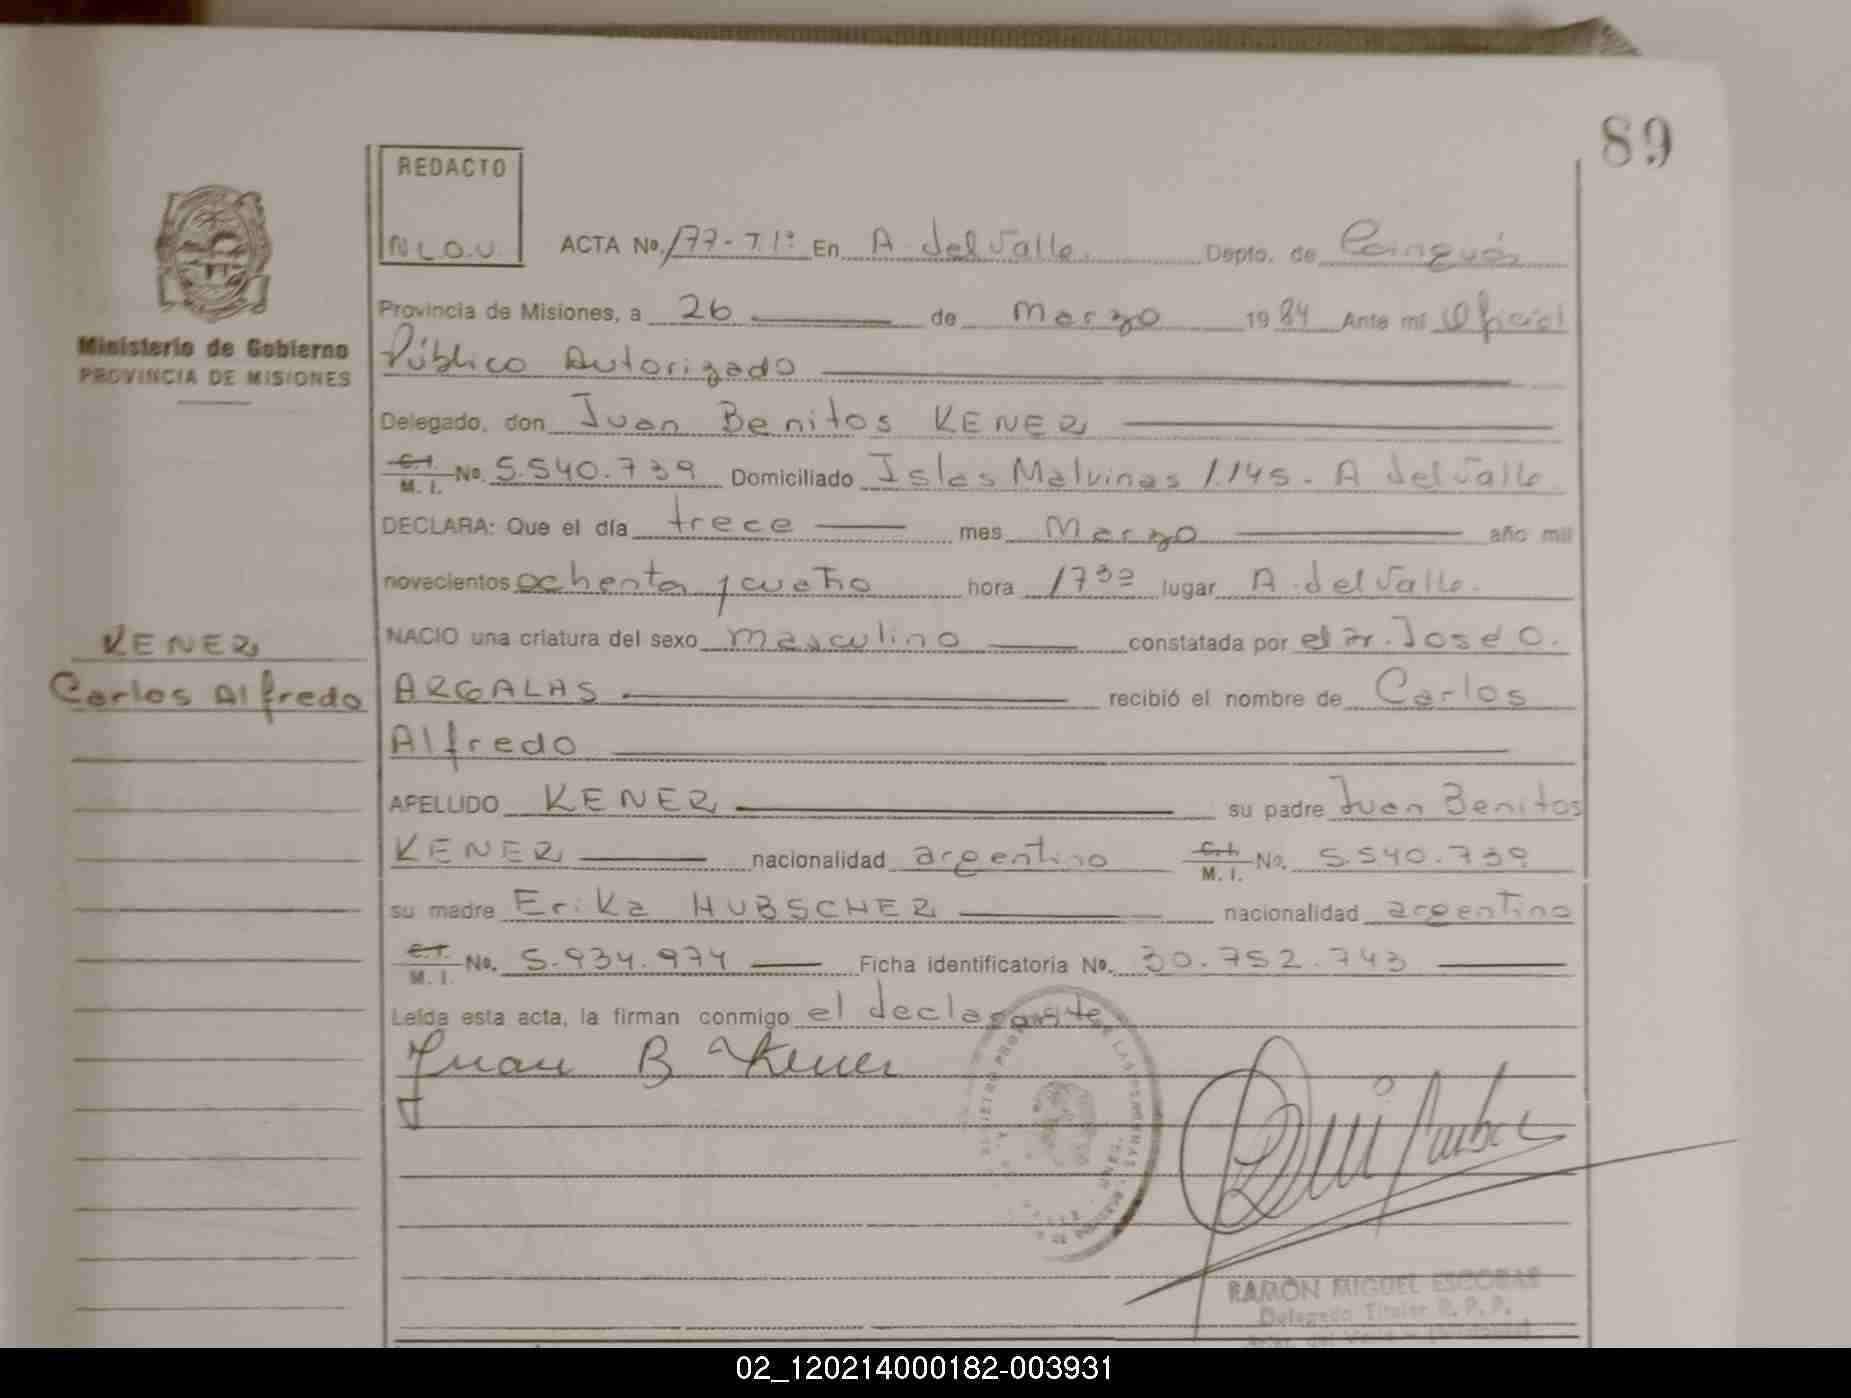 89
REDACTO
N.L.O.V.
ACTA No. 177-T1º En A. del Valle. Depto. de Cainguás
Provincia de Misiones, a 26 de Marzo 1984 Ante mí Oficial
Ministerio de Gobierno
PROVINCIA DE MISIONES
Público Autorizado
Delegado, don Juan Benitos KENER
C.I. M. I. No. 5.540.739 Domiciliado Islas Malvinas 1.145. A del Valle
DECLARA: Que el día trece mes Marzo año mil
novecientos ochenta y cuatro hora 17³º lugar A. del Valle.
KENER
Carlos Alfredo
NACIO una criatura del sexo masculino constatada por el Dr. José O.
ARGALAS recibió el nombre de Carlos
Alfredo
APELLIDO KENER su padre Juan Benitos
KENER nacionalidad argentino C.I. M. I. No. 5.540.739
su madre Erika HUBSCHER nacionalidad argentina
C.I. M. I. No. 5.934.974 Ficha identificatoria No. 30.752.743
Leída esta acta, la firman conmigo el declarante
Juan B Kener
RAMÓN MIGUEL ESCOBAR
Delegado Titular R. P. P.
02_120214000182-003931